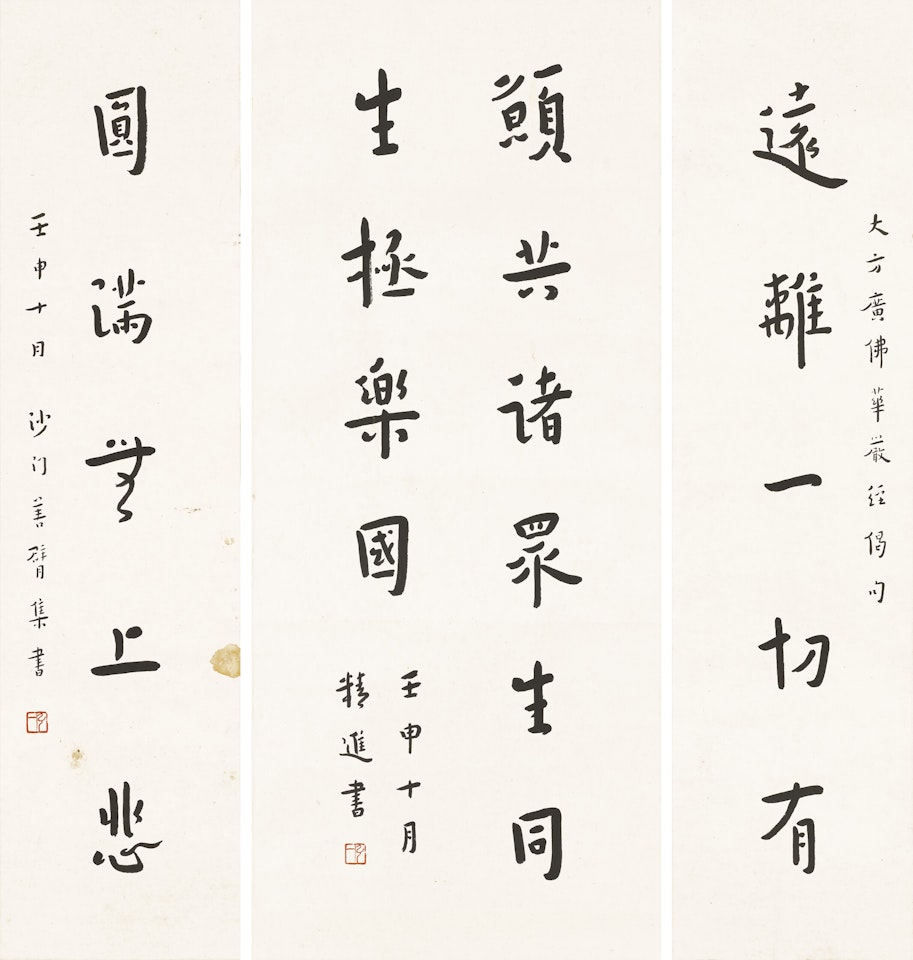 大方廣佛華嚴經偈句
遠離一切有
願共諸眾生同
生極樂國
壬申十月
精進書
圓滿無上悲
壬申十月 沙門善臂集書